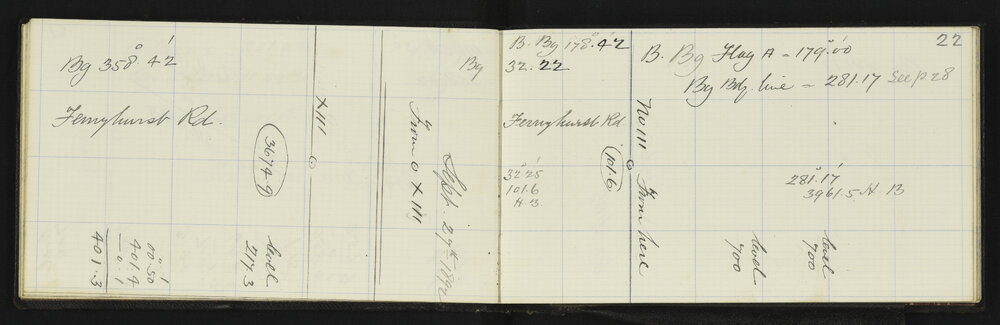 Bg 358° 42'
Fernyhurst Rd.
X 111
3674.9
level
217.3
1
00°.50
401.4
0.1
401.3
Bg
From 0 X 111
Sept. 29th 1892
B. Bg 178° 42'
32.22
Fernyhurst Rd
32° 25'
101.6
H 3
101.6
No 111 From here
22
B. Bg Flag A = 179° 00'
Bg Bdy. line = 281.17 See p 28
281° 17'
3961.5 H B
level
700
level
700